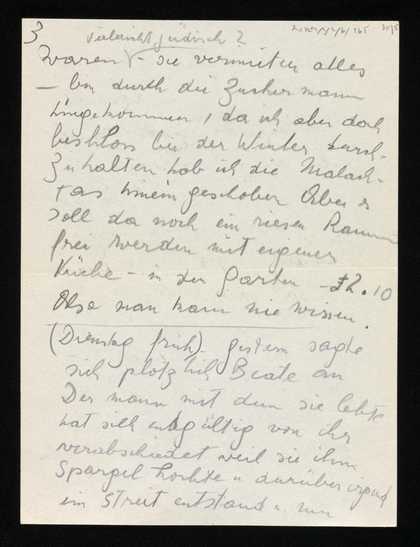 3
vieleicht jüdisch?
waren – sie vermieten alles
– bin durch die Zuckermann
hingekommen, da ich aber doch
beschloss bei der Winter durch-
zuhalten hab ich die
hineingeschoben Aber es
soll da noch ein riesen Raum
frei werden mit eigener
Küche – in den Garten – £2.10
Also man kann nie wissen.
(Dienstag früh) gestern sagte
sich plötzlich Beate an
Der mann mit dem sie lebte
hat sich endgültig von ihr
verabschiedet weil sie ihm
Spargel kochte u darüber irgend
ein Streit entstand u. nun